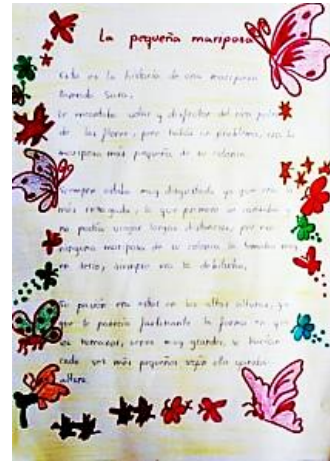 La pequeña mariposa
Esta es la historia de una mariposa
llamada Sara.
Le encantaba volar y disfrutar del rico polen
de las flores, pero había un problema, era la
mariposa más pequeña de su colonia.
Siempre estaba muy disgustada ya que era la
más rezagada, la que primero se cansaba y
no podía volar largas distancias, por eso
ninguna mariposa de su colonia la tomaba muy
en serio, siempre era la debilucha.
Su pasión era estar en las altas alturas, ya
que le parecía fascinante la forma en que
los humanos, seres muy grandes, se hacían
cada vez más pequeños según ella ganaba
altura.